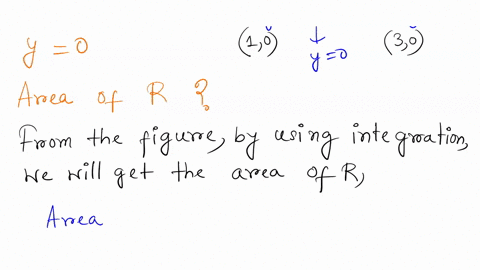 y = 0 (1,0) ↓ (3,0)
y=0
Area of R ?
From the figurre, by using integration,
we will get the area of R,
Area